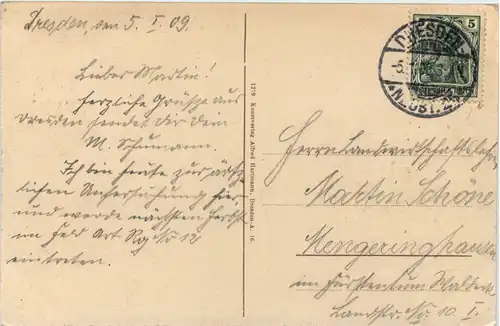 Dresden, den 5. I. 09.
Lieber Martin!
Herzliche Grüße aus
Dresden sendet dir dein
M. Schumann.
Ich bin heute zur ärzt-
lichen Untersuchung hier
und werde nächsten Herbst
im Feld Art. Rg. No 12
eintreten.
179 Kunstverlag Alfred Hartmann, Dresden-A. 16.
5
DRESDEN
NEUST.
Herrn Landwirtschaftslehr
Martin Schöne
Mengeringhausen
im Fürstentum Waldeck
Landstr. No. 10 I.